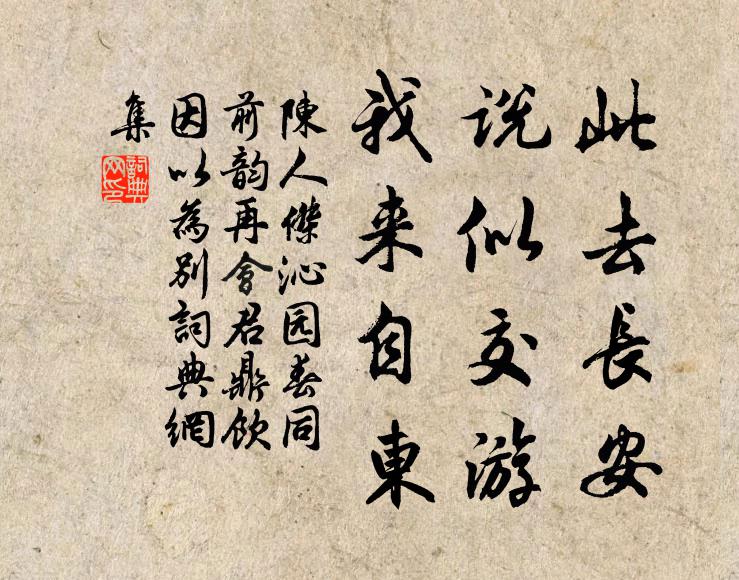 此去長安
说似交游
我来自東
陳人傑沁园春同
前韵再會君鼎飲
因以為別詞典網
集
詞典網印